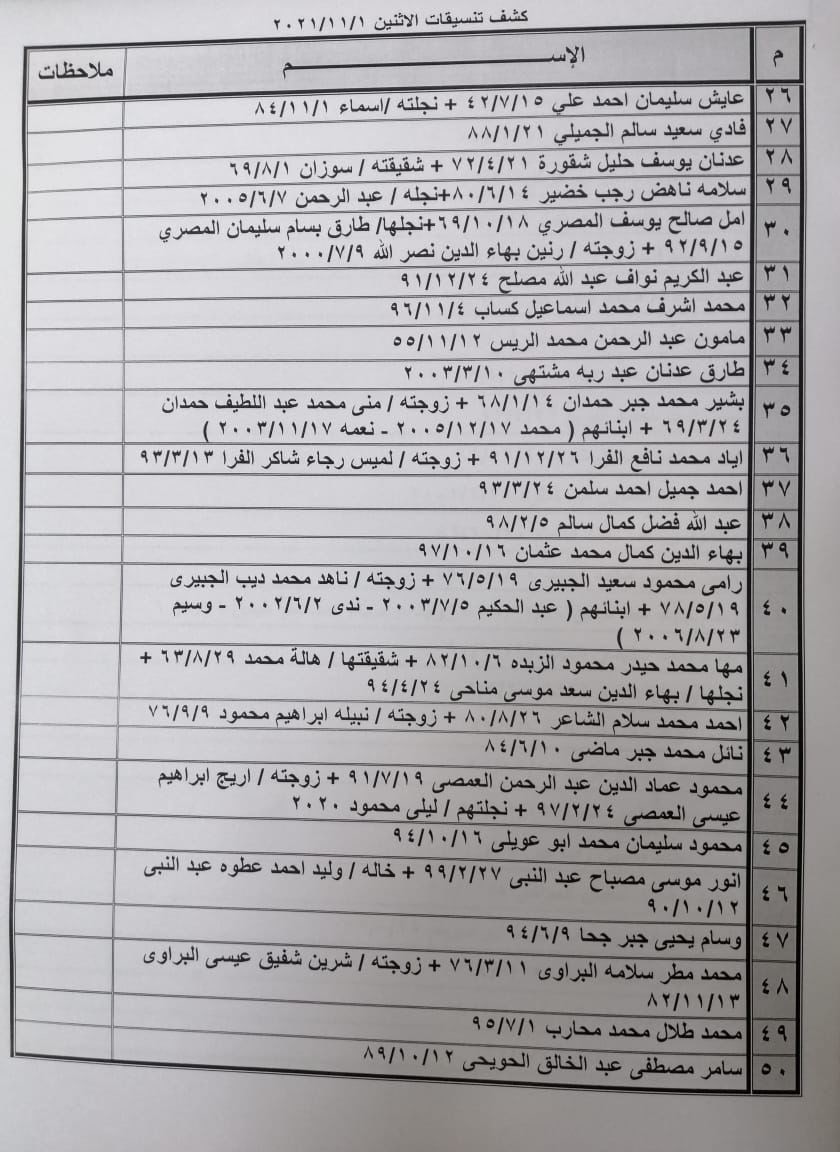 كشف تنسيقات الاثنين ٢٠٢١/١١/١
م الإســـــــــــــــم ملاحظات
٢٦ عايش سليمان احمد علي ٤٢/٧/١٥ + نجلته /اسماء ٨٤/١١/١
٢٧ فادي سعيد سالم الجميلي ٨٨/١/٢١
٢٨ عدنان يوسف حليل شقورة ٧٢/٤/٢١ + شقيقته / سوزان ٦٩/٨/١
٢٩ سلامه ناهض رجب خضير ٨٠/٦/١٤+نجله / عبد الرحمن ٢٠٠٥/٦/٧
٣٠ امل صالح يوسف المصري ٦٩/١٠/١٨+نجلها/ طارق بسام سليمان المصري
٩٢/٩/١٥ + زوجته / رنين بهاء الدين نصر الله ٢٠٠٠/٧/٩
٣١ عبد الكريم نواف عبد الله مصلح ٩١/١٢/٢٤
٣٢ محمد اشرف محمد اسماعيل كساب ٩٦/١١/٤
٣٣ مامون عبد الرحمن محمد الريس ٥٥/١١/١٢
٣٤ طارق عدنان عبد ربه مشتهى ٢٠٠٣/٣/١٠
٣٥ بشير محمد جبر حمدان ٦٨/١/١٤ + زوجته / منى محمد عبد اللطيف حمدان
٦٩/٣/٢٤ + ابنائهم ( محمد ٢٠٠٥/١٢/١٧ - نعمه ٢٠٠٣/١١/١٧ )
٣٦ اياد محمد نافع الفرا ٩١/١٢/٢٦ + زوجته / لميس رجاء شاكر الفرا ٩٣/٣/١٣
٣٧ احمد جميل احمد سلمن ٩٣/٣/٢٤
٣٨ عبد الله فضل كمال سالم ٩٨/٢/٥
٣٩ بهاء الدين كمال محمد عثمان ٩٧/١٠/١٦
٤٠ رامى محمود سعيد الجبيرى ٧٦/٥/١٩ + زوجته / ناهد محمد ديب الجبيرى
٧٨/٥/١٩ + ابنائهم ( عبد الحكيم ٢٠٠٣/٧/٥ - ندى ٢٠٠٢/٦/٢ - وسيم
٢٠٠٦/٨/٢٣ )
٤١ مها محمد حيدر محمود الزبده ٨٢/١٠/٦ + شقيقتها / هالة محمد ٦٣/٨/٢٩ +
نجلها / بهاء الدين سعد موسى مناحى ٩٤/٤/٢٤
٤٢ احمد محمد سلام الشاعر ٨٠/٨/٢٦ + زوجته / نبيله ابراهيم محمود ٧٦/٩/٩
٤٣ نائل محمد جبر ماضى ٨٤/٦/١٠
٤٤ محمود عماد الدين عبد الرحمن العمصى ٩١/٧/١٩ + زوجته / اريج ابراهيم
عيسى العمصى ٩٧/٢/٢٤ + نجلتهم / ليلى محمود ٢٠٢٠
٤٥ محمود سليمان محمد ابو عويلى ٩٤/١٠/١٦
٤٦ انور موسى مصباح عبد النبى ٩٩/٢/٢٧ + خاله / وليد احمد عطوه عبد النبى
٩٠/١٠/١٢
٤٧ وسام يحيى جبر جحا ٩٤/٦/٩
٤٨ محمد مطر سلامه البراوى ٧٦/٣/١١ + زوجته / شرين شفيق عيسى البراوى
٨٢/١١/١٣
٤٩ محمد طلال محمد محارب ٩٥/٧/١
٥٠ سامر مصطفى عبد الخالق الحويحى ٨٩/١٠/١٢